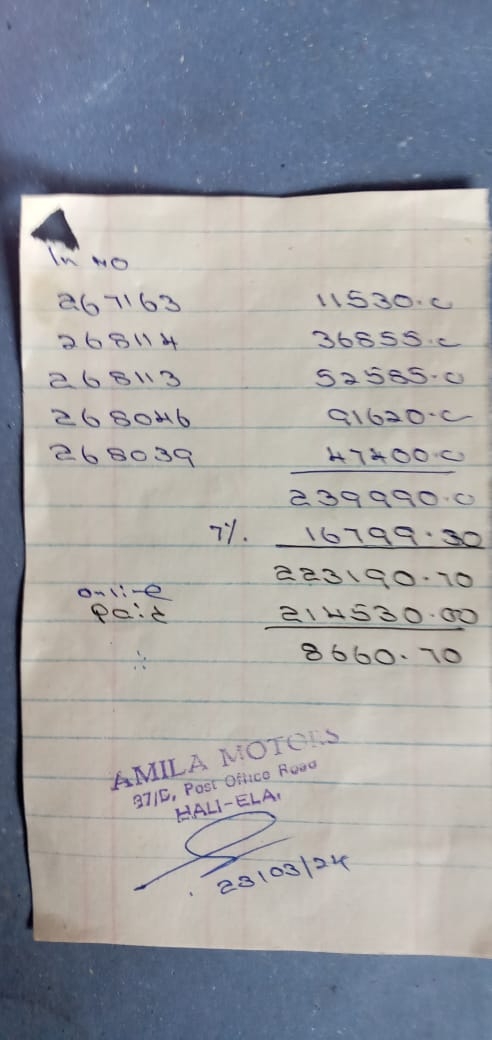 In NO
267163 11530.0
268114 36855.0
268113 52585.0
268046 91620.0
268039 47400.0
239990.0
7%. 16799.30
223190.70
online
paid 214530.00
8660.70
AMILA MOTORS
37/C, Post Office Road
HALI-ELA.
23/03/24